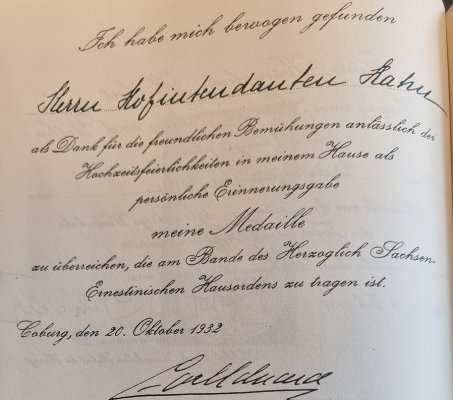 Ich habe mich bewogen gefunden
Herrn Hofintendanten Kahn
als Dank für die freundlichen Bemühungen anlässlich der
Hochzeitsfeierlichkeiten in meinem Hause als
persönliche Erinnerungsgabe
meine Medaille
zu überreichen, die am Bande des Herzoglich Sachsen-
Ernestinischen Hausordens zu tragen ist.
Coburg, den 20. Oktober 1932
Carl Eduard